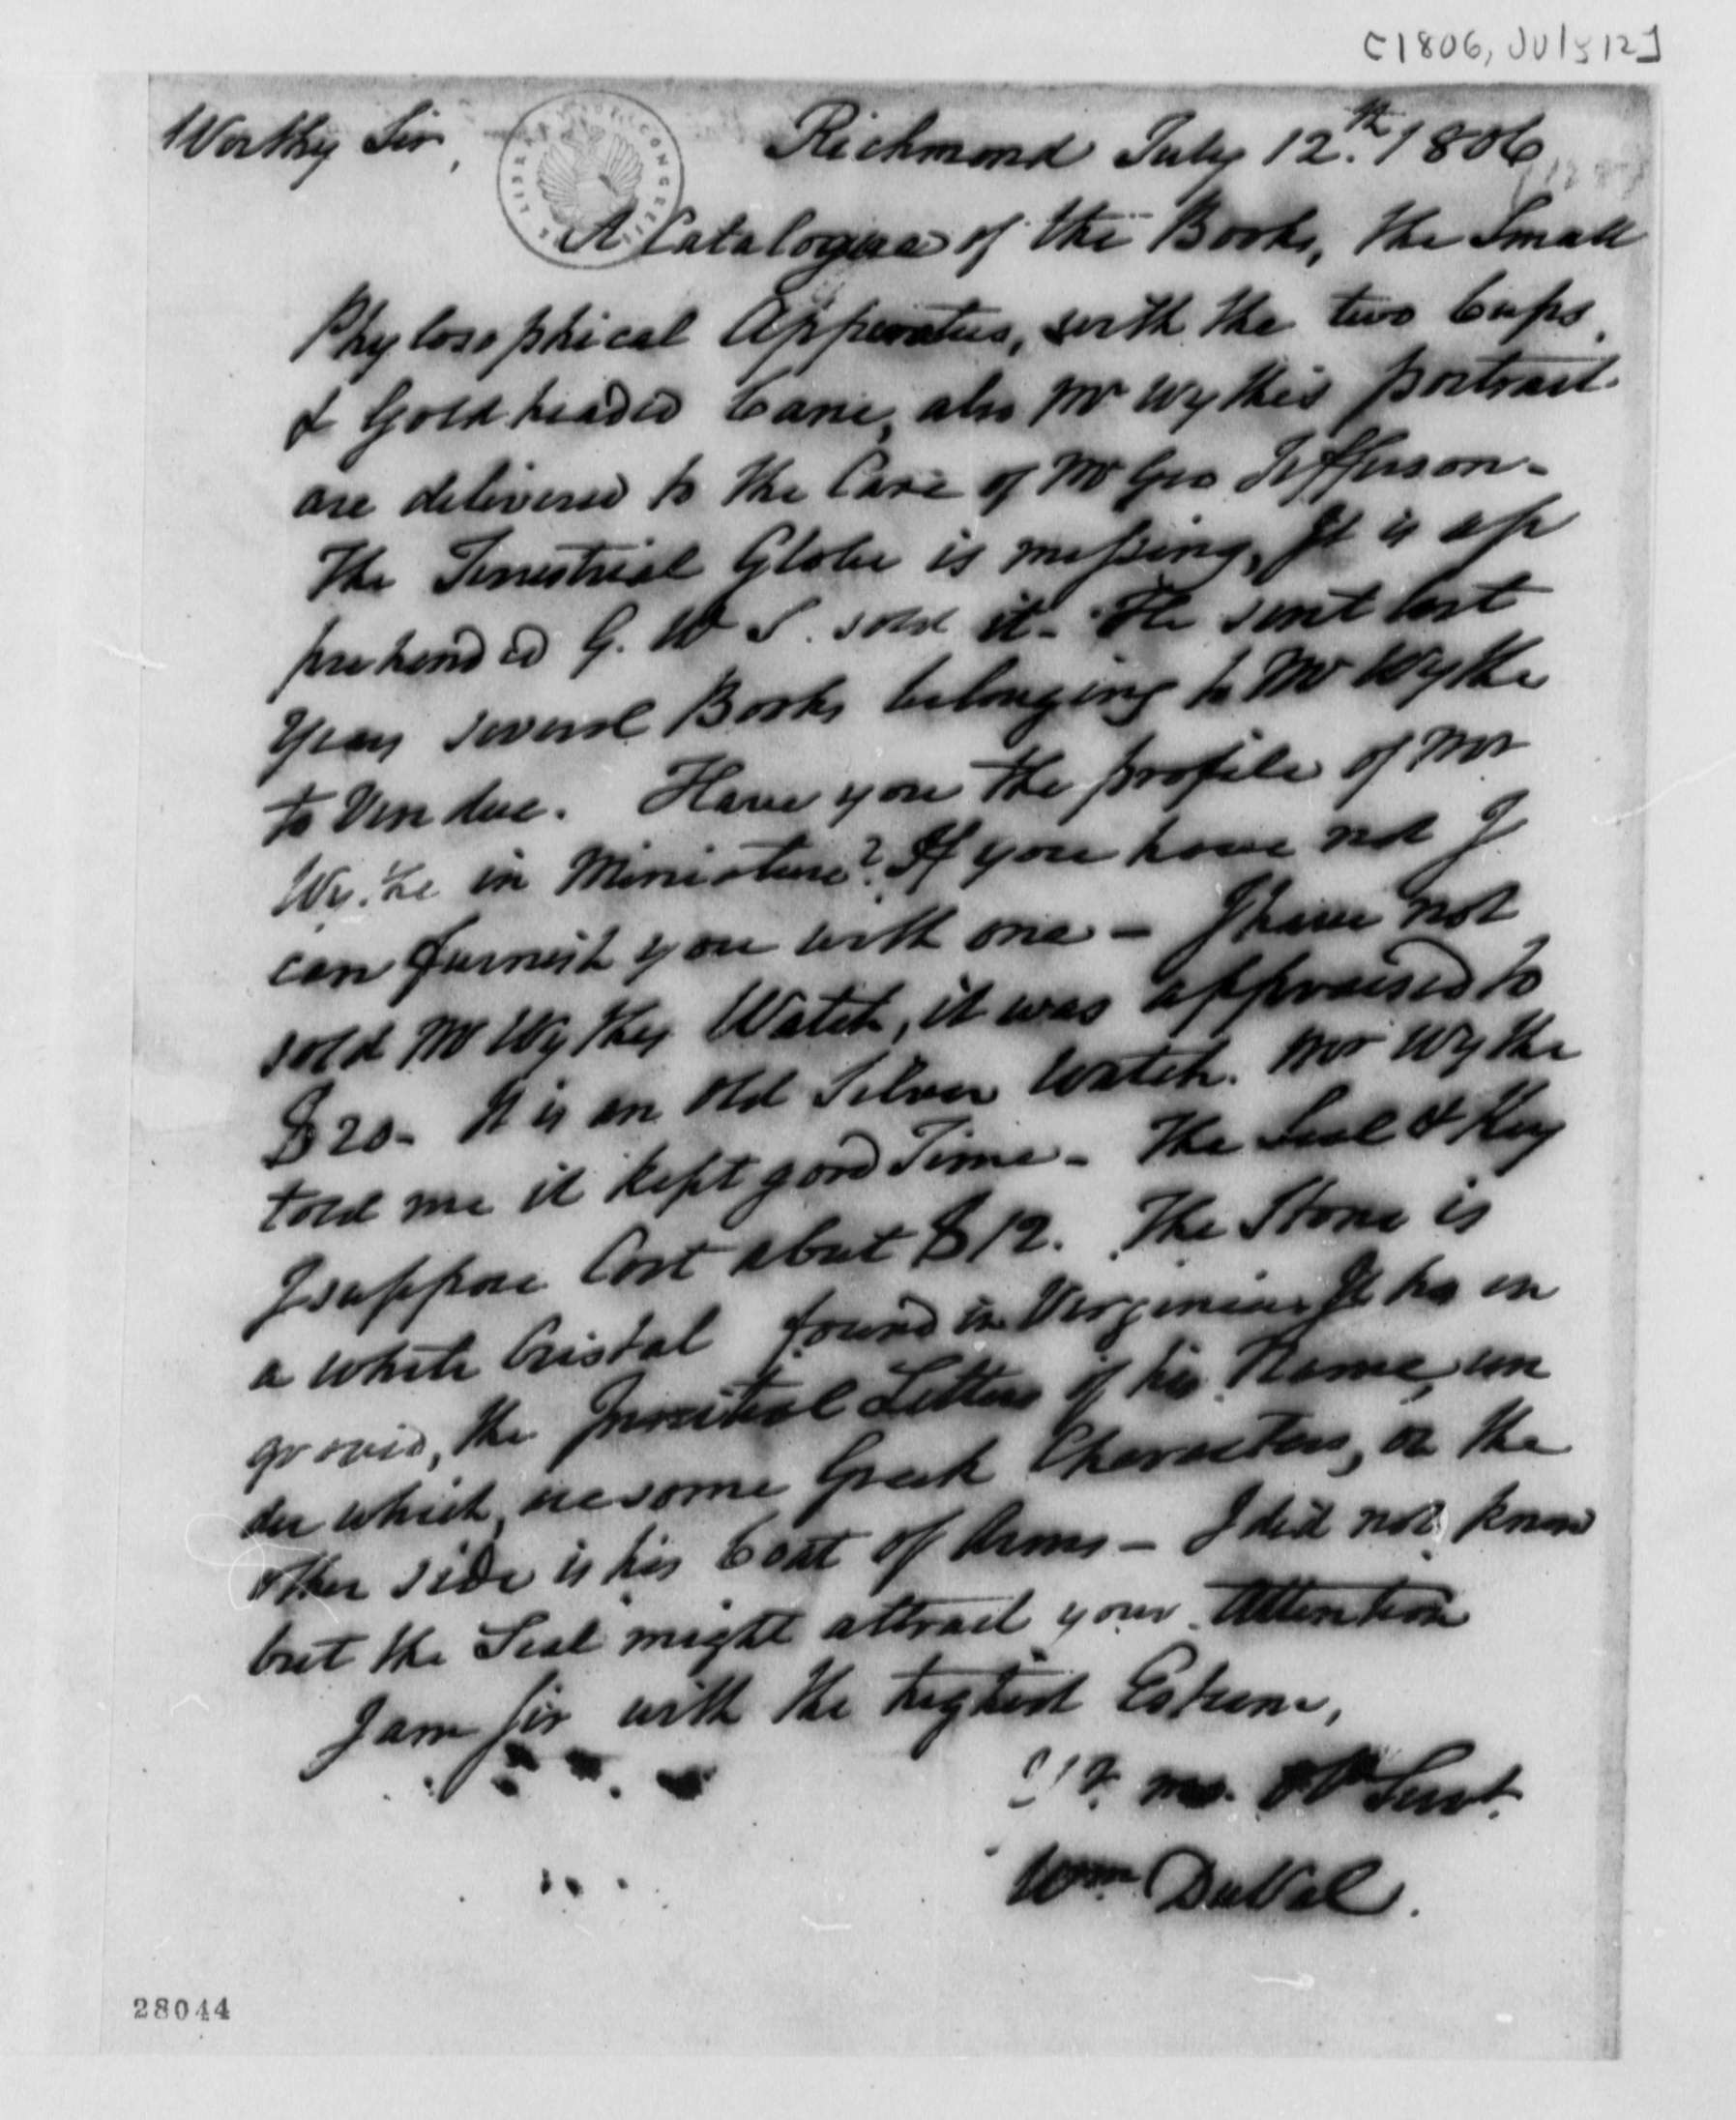 [1806, July 12]
Worthy Sir, Richmond July 12.th 1806
A Catalogue of the Books, the Small
Phylosophical Apparatus, with the two Cups
& Gold headed Cane, also Mr Wythe's portrait
are delivered to the Care of Mr Geo Jefferson-
The Terrestrial Globe is missing, It is ap
prehended G. W S. sold it- He sent last
Year several Books belonging to Mr Wythe
to Vendue. Have you the profile of Mr
Wythe in Miniature? If you have not I
can furnish you with one - I have not
sold Mr Wythes Watch, it was appraised to
$20- It is an old Silver Watch. Mr Wythe
told me it kept good Time- The Seal & Key
I suppose Cost about $12. The Stone is
a white Cristal found in Virginia It has en
graved, the Innitial Letters of his Name, un
der which, are some Greek Characters, on the
other side is his Coat of Arms - I did not know
but the Seal might attract your Attention
I am Sir with the highest Esteem,
mo. Obt Servt.
Wm DuVal.
28044